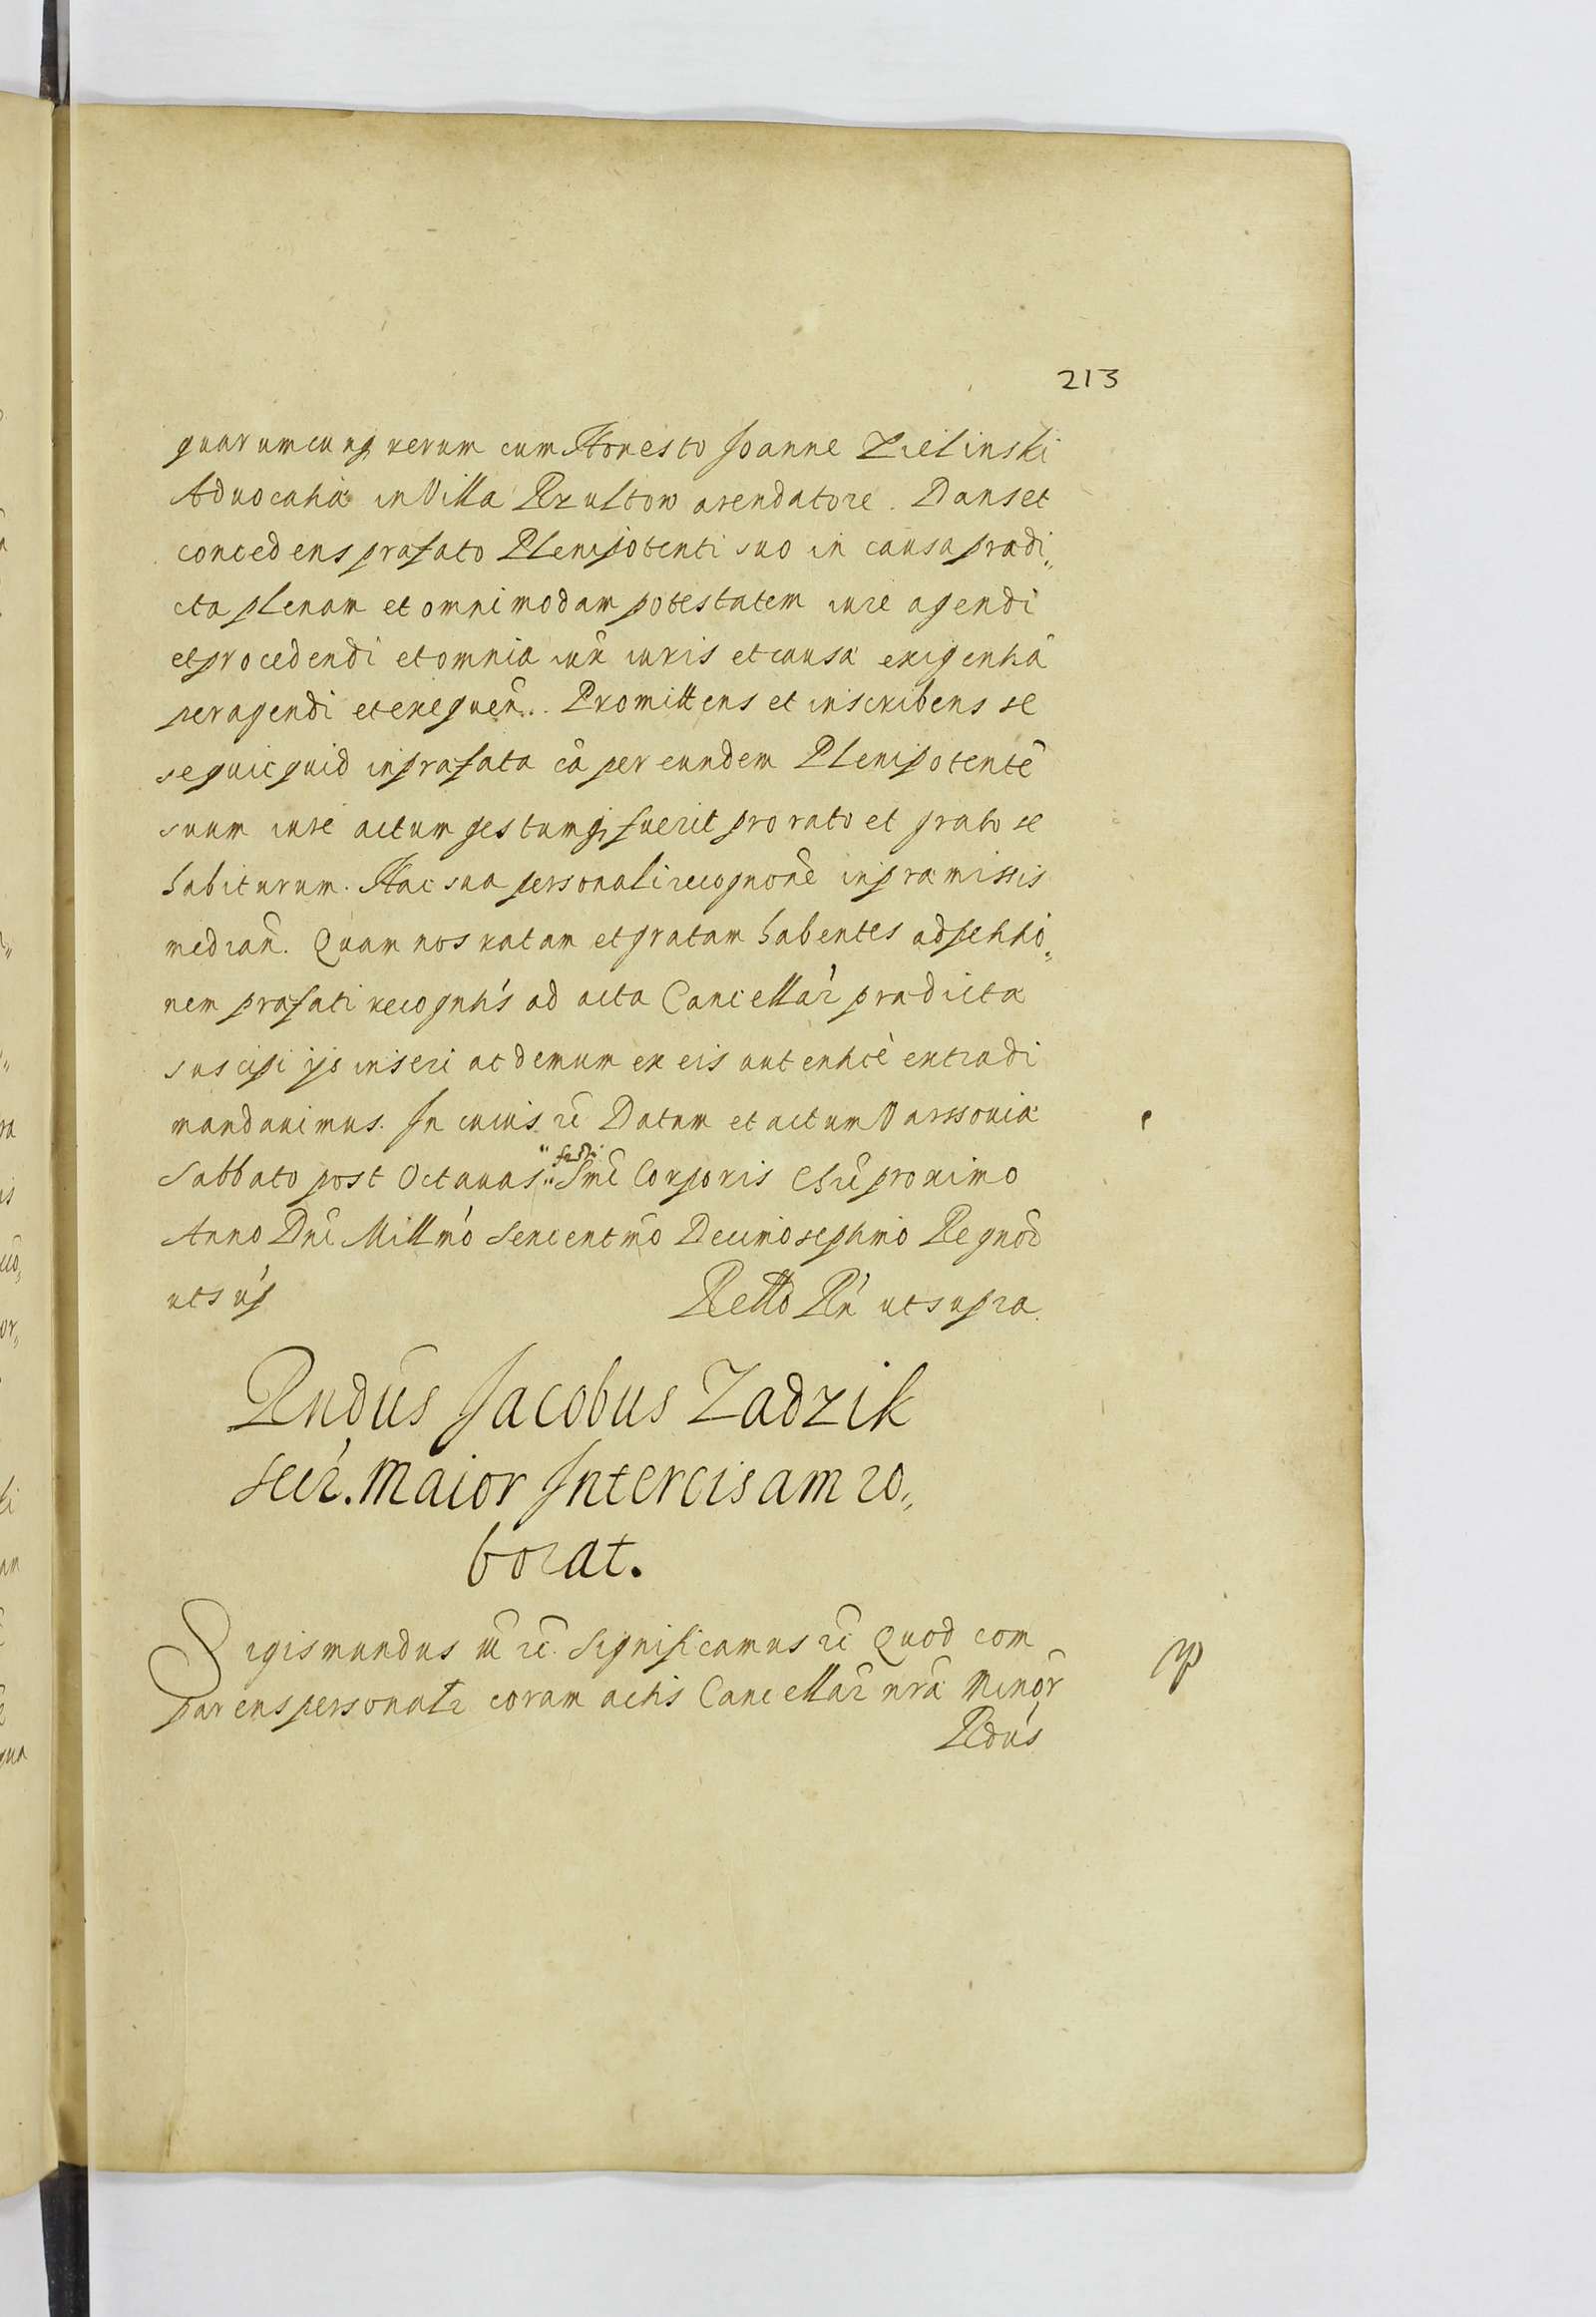 213
quarumcunq rerum cum Honesto Joanne Zielinski
Aduocatiæ in Villa Rzultow arendatore. Dans et
concedens præfato Plenipotenti suo in causa prædi„
cta plenam et omnimodam potestatem iure agendi
et procedendi et omnia iux iuris et causæ exigentiã
peragendi et exequeñ.. Promittens et inscribens se
se quicquid in præfata cã per eundem Plenipotentẽ
suum iure actum gestumq fuerit pro rato et grato se
habiturum. Hac sua personali recognonẽ in præmissis
median̄. Quam nos ratam et gratam habentes ad petitio„
nem præfati recogntis ad acta Cancellar prædicta
suscipi ijs inseri ac demum ex eis autenticè extradi
mandauimus. In cuius rẽ Datum et actum Varssouiæ
Sabbato post Octauas „ festi „ Smĩ Corporis Chrĩ proximo
Anno Dnĩ Millmó Sexcentmõ Decimoseptimo Regnoꝝ
ut sup Rettõ Rñ ut supra.
Rndũs Jacobus Zadzik
secr. Maior Intercisam ro„
borat.
Sigismundus III rc̃. Significamus rc̃ Quod com
parens personatr coram actis Cancellar nræ Minor̃
Rdus